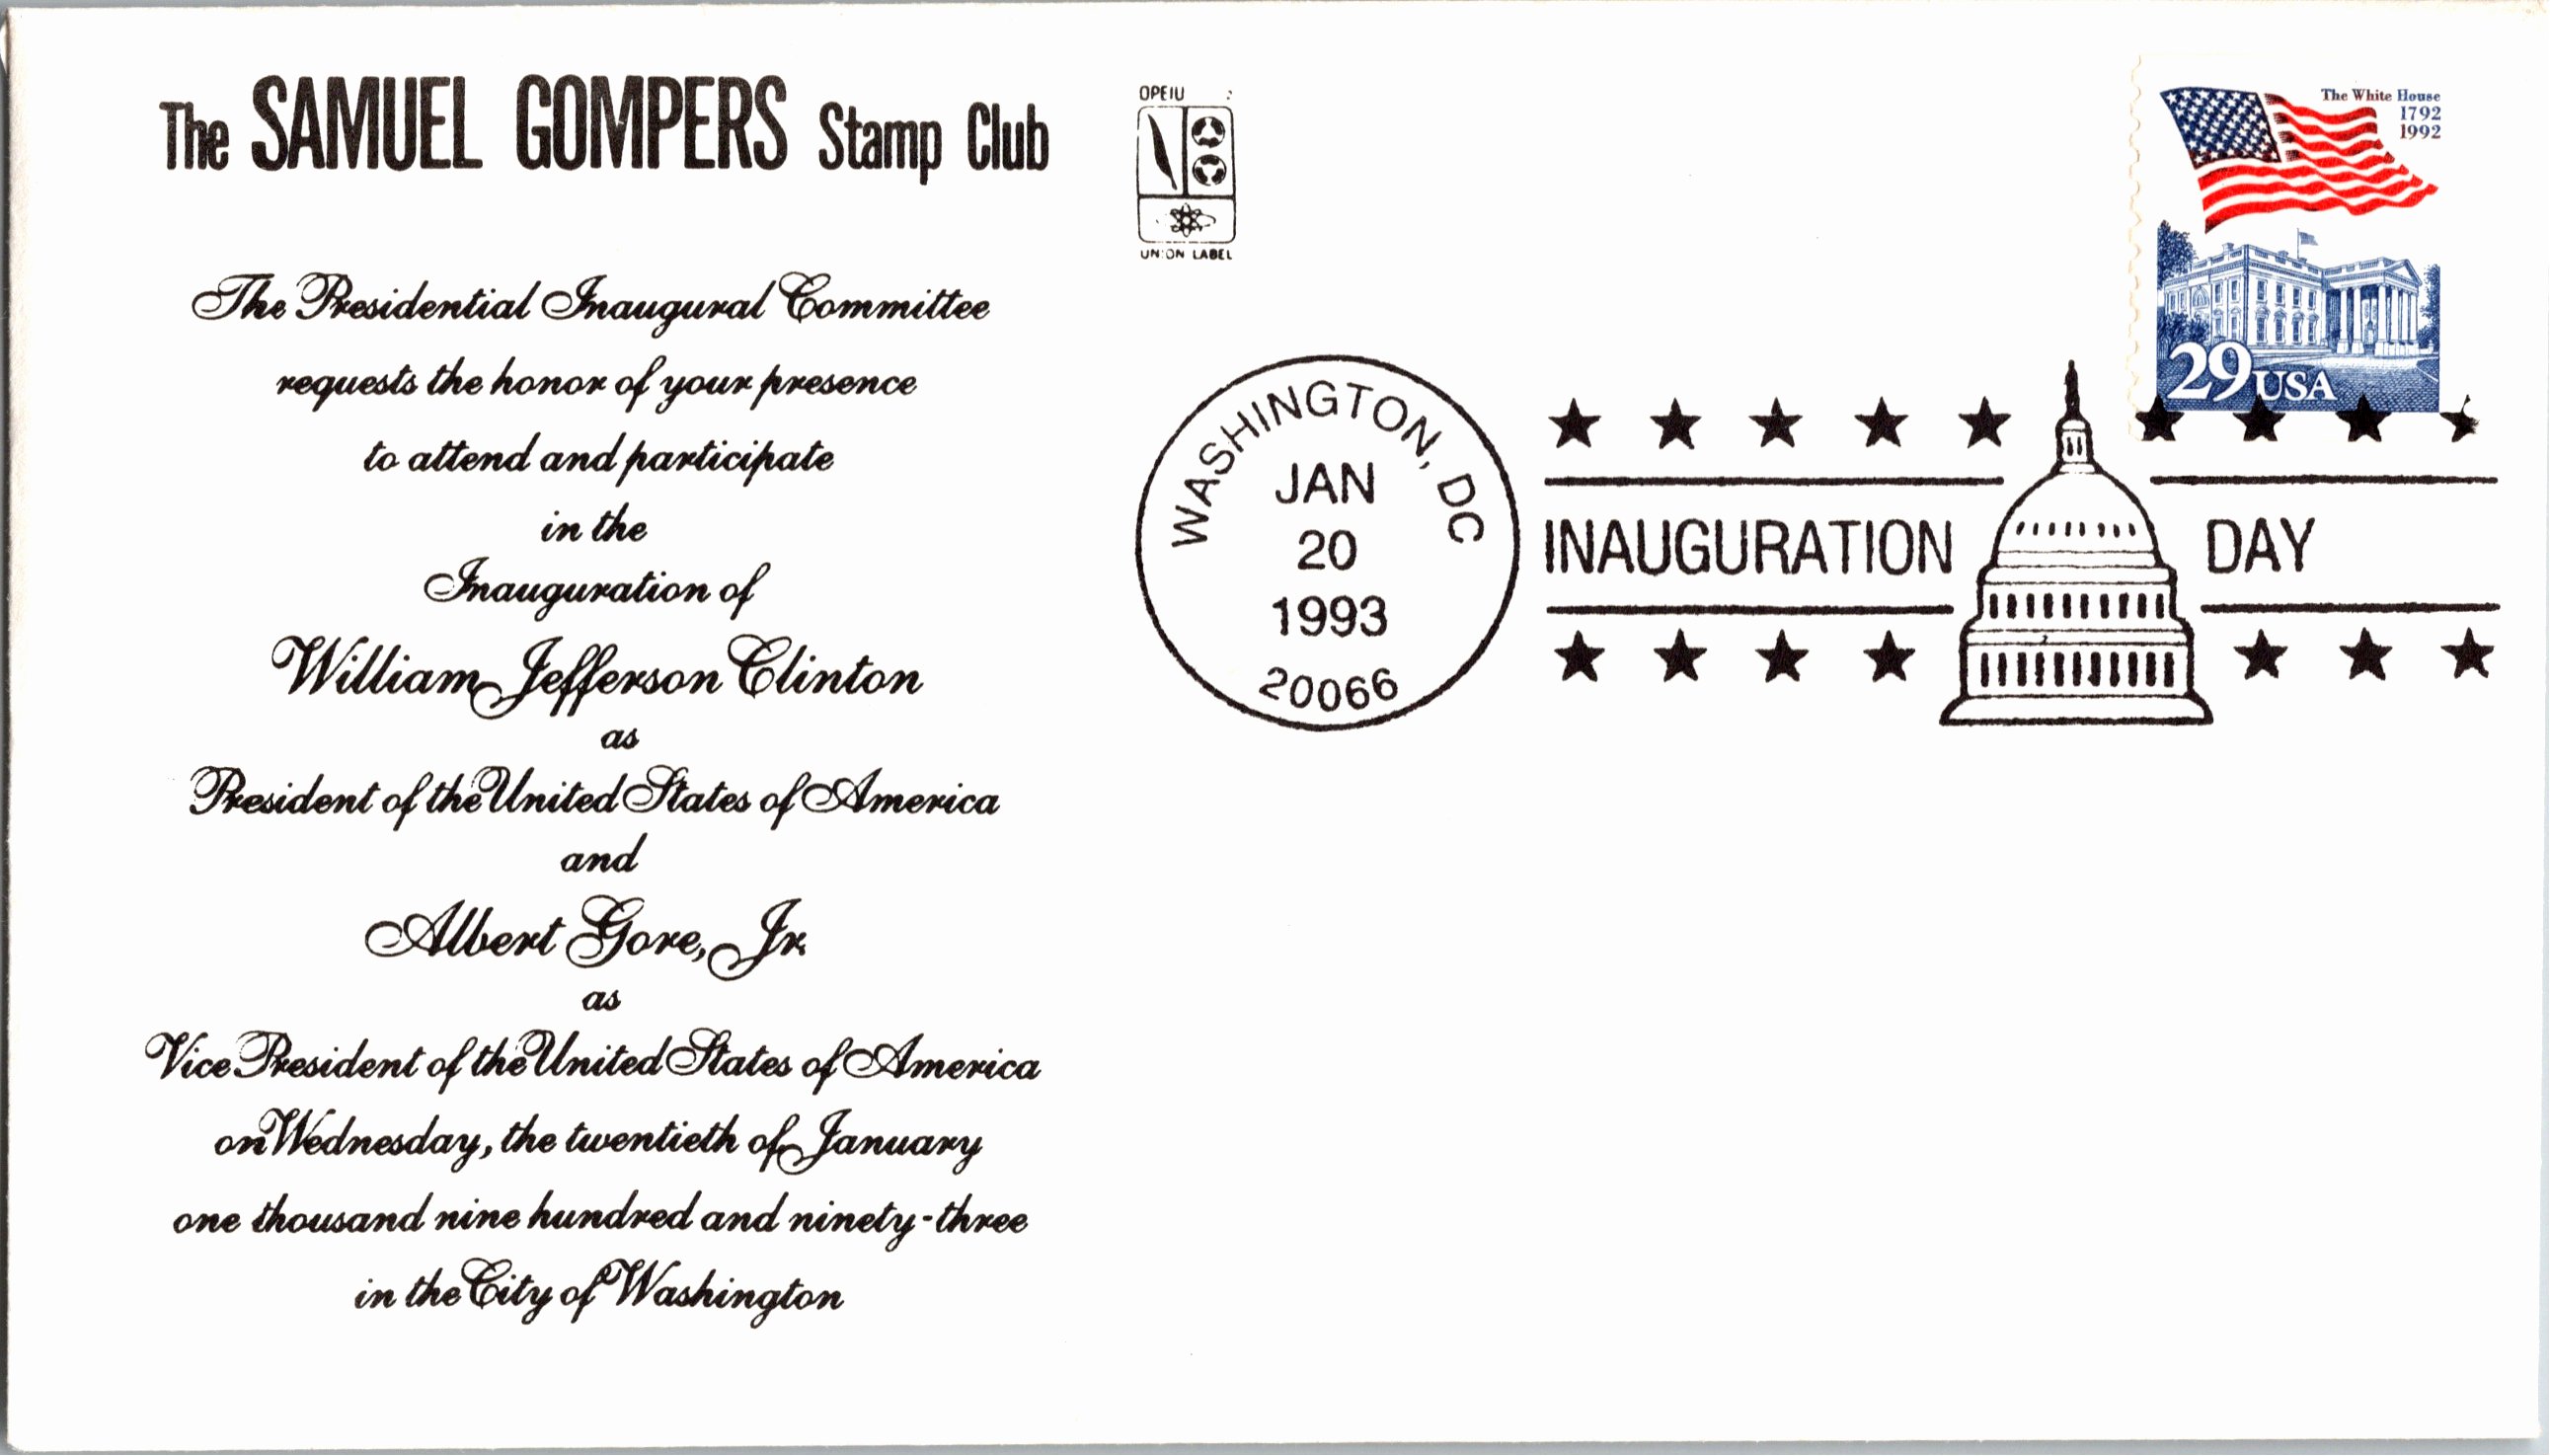 The SAMUEL GOMPERS Stamp Club
OPEIU
UNION LABEL
The Presidential Inaugural Committee
requests the honor of your presence
to attend and participate
in the
Inauguration of
William Jefferson Clinton
as
President of the United States of America
and
Albert Gore, Jr.
as
Vice President of the United States of America
on Wednesday, the twentieth of January
one thousand nine hundred and ninety-three
in the City of Washington
WASHINGTON, DC
JAN
20
1993
20066
INAUGURATION DAY
The White House
1792
1992
29 USA